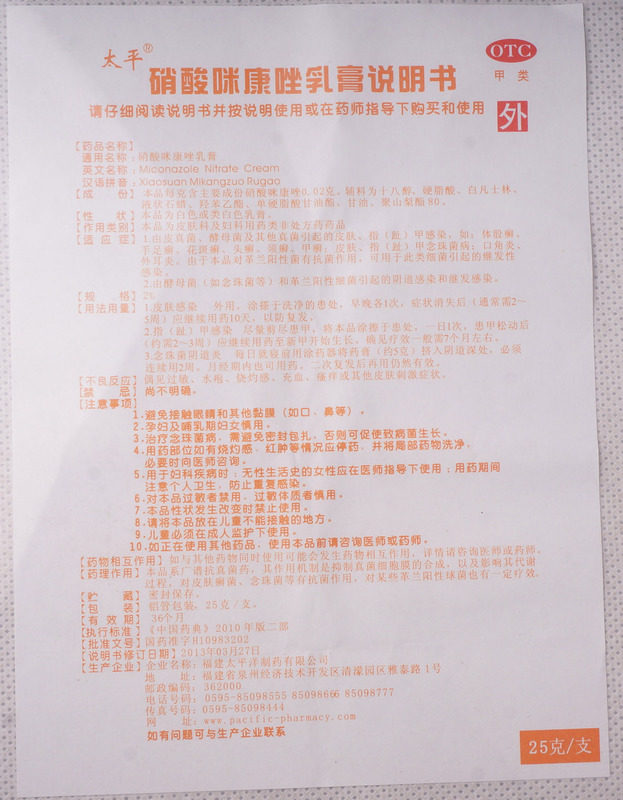 太平®
OTC
甲 类
硝酸咪康唑乳膏说明书
请仔细阅读说明书并按说明使用或在药师指导下购买和使用
外
【药品名称】
通用名称：硝酸咪康唑乳膏
英文名称：Miconazole Nitrate Cream
汉语拼音：Xiaosuan Mikangzuo Rugao
【成　　份】本品每克含主要成份硝酸咪康唑0.02克。辅料为十八醇、硬脂酸、白凡士林、
液状石蜡、羟苯乙酯、单硬脂酸甘油酯、甘油、聚山梨酯80。
【性　　状】本品为白色或类白色乳膏。
【作用类别】本品为皮肤科及妇科用药类非处方药药品
【适 应 症】1.由皮真菌、酵母菌及其他真菌引起的皮肤、指（趾）甲感染，如：体股癣、
手足癣、花斑癣、头癣、须癣、甲癣；皮肤、指（趾）甲念珠菌病；口角炎、
外耳炎。由于本品对革兰阳性菌有抗菌作用，可用于此类细菌引起的继发性
感染。
2.由酵母菌（如念珠菌等）和革兰阳性细菌引起的阴道感染和继发感染。
【规　　格】2%
【用法用量】1.皮肤感染　外用，涂搽于洗净的患处，早晚各1次，症状消失后（通常需2～
5周）应继续用药10天，以防复发。
2.指（趾）甲感染　尽量剪尽患甲，将本品涂擦于患处，一日1次，患甲松动后
（约需2～3周）应继续用药至新甲开始生长。确见疗效一般需7个月左右。
3.念珠菌阴道炎　每日就寝前用涂药器将药膏（约5克）挤入阴道深处，必须
连续用2周。月经期内也可用药。二次复发后再用仍然有效。
【不良反应】偶见过敏、水疱、烧灼感、充血、瘙痒或其他皮肤刺激症状。
【禁　　忌】尚不明确。
【注意事项】
1.避免接触眼睛和其他黏膜（如口、鼻等）。
2.孕妇及哺乳期妇女慎用。
3.治疗念珠菌病，需避免密封包扎，否则可促使致病菌生长。
4.用药部位如有烧灼感、红肿等情况应停药，并将局部药物洗净，
必要时向医师咨询。
5.用于妇科疾病时：无性生活史的女性应在医师指导下使用；用药期间
注意个人卫生，防止重复感染。
6.对本品过敏者禁用，过敏体质者慎用。
7.本品性状发生改变时禁止使用。
8.请将本品放在儿童不能接触的地方。
9.儿童必须在成人监护下使用。
10.如正在使用其他药品，使用本品前请咨询医师或药师。
【药物相互作用】如与其他药物同时使用可能会发生药物相互作用，详情请咨询医师或药师。
【药理作用】本品系广谱抗真菌药，其作用机制是抑制真菌细胞膜的合成，以及影响其代谢
过程，对皮肤癣菌、念珠菌等有抗菌作用，对某些革兰阳性球菌也有一定疗效。
【贮　　藏】密封保存。
【包　　装】铝管包装，25克/支。
【有 效 期】36个月
【执行标准】《中国药典》2010年版二部
【批准文号】国药准字H10983202
【说明书修订日期】2013年03月27日
【生产企业】企业名称：福建太平洋制药有限公司
地　　址：福建省泉州经济技术开发区清濛园区雅泰路1号
邮政编码：362000
电话号码：0595-85098555 85098666 85098777
传真号码：0595-85098444
网　　址：www.pacific-pharmacy.com
如有问题可与生产企业联系
25克/支